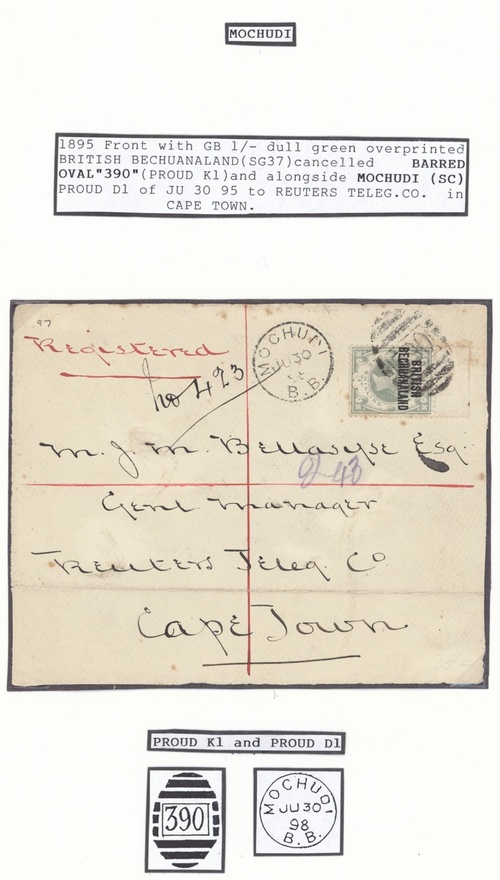 MOCHUDI
1895 Front with GB 1/- dull green overprinted
BRITISH BECHUANALAND(SG37)cancelled BARRED
OVAL"390"(PROUD K1)and alongside MOCHUDI (SC)
PROUD D1 of JU 30 95 to REUTERS TELEG.CO. in
CAPE TOWN.
97
Registered
No 423
MOCHUDI
JU 30
B.B.
BRITISH
BECHUANALAND
M. J. M. Bellasyse Esq.
243
Genl Manager
Reuters Teleg. Co
Cape Town
PROUD K1 and PROUD D1
390
MOCHUDI
JU 30
98
B.B.